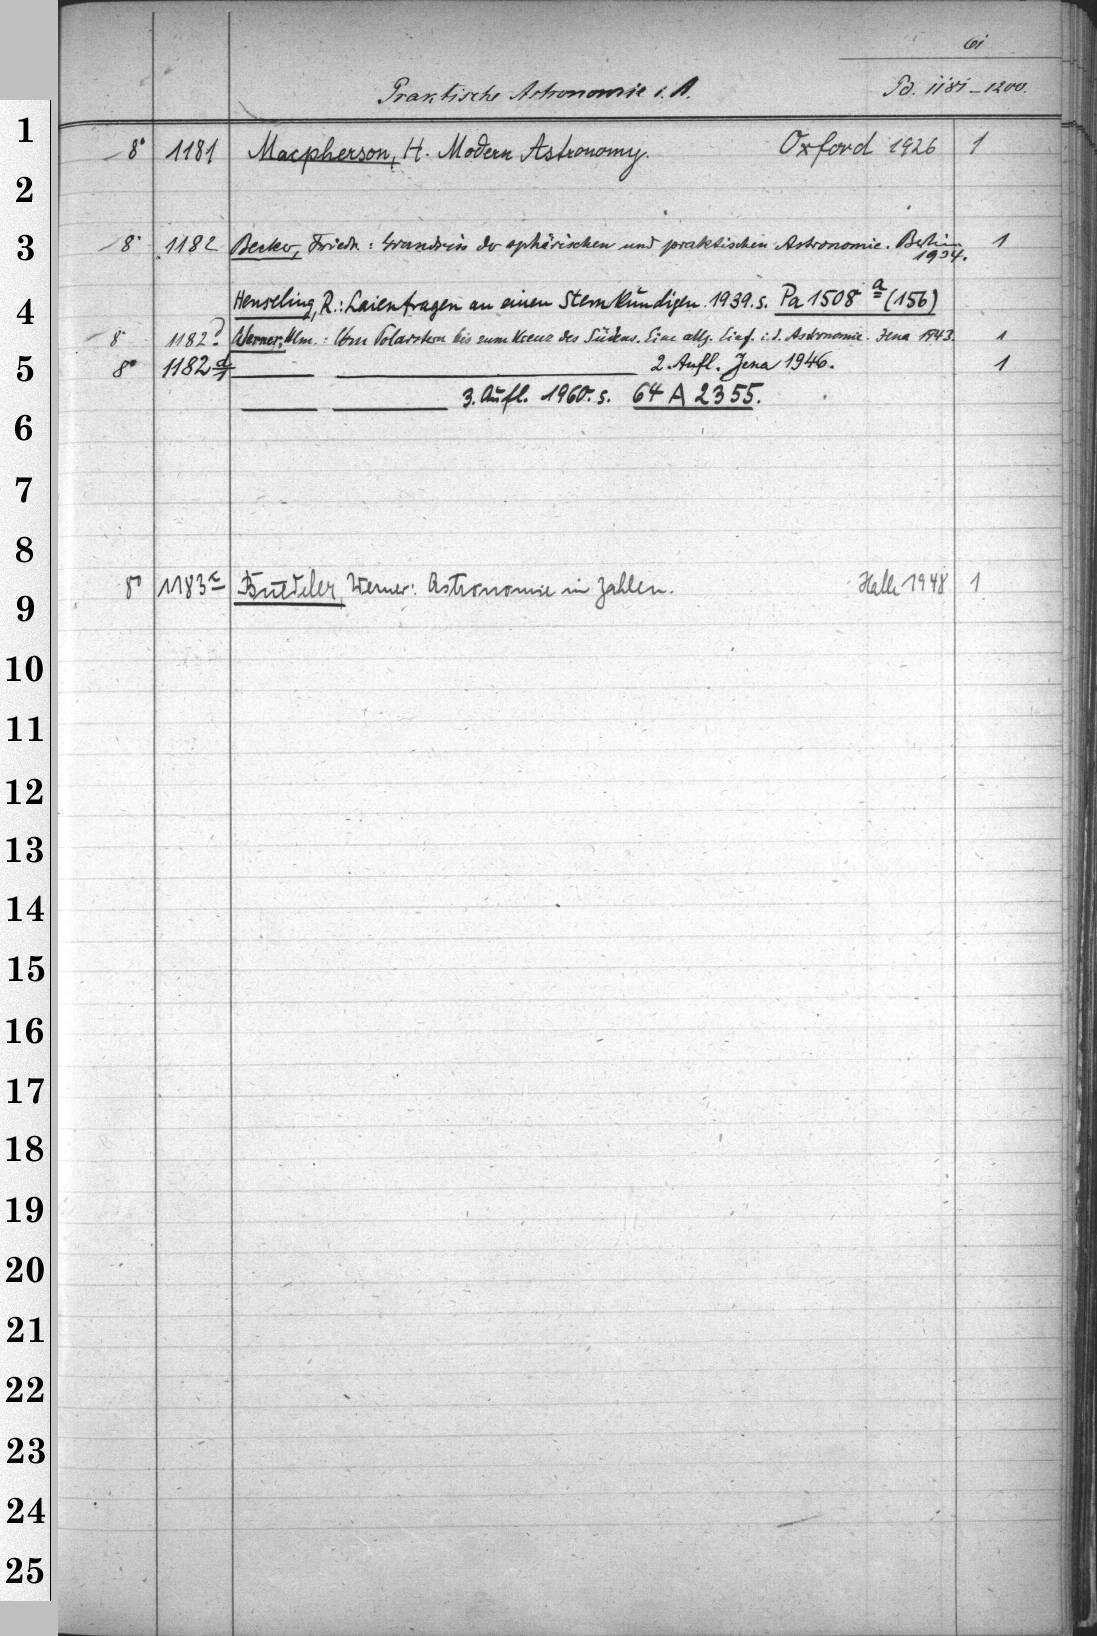 61
Praktische Astronomie i. A.
Pd. 1181-1200.
1
8° 1181 Macpherson, H. Modern Astronomy. Oxford 1926 1
2
3
8° 1182 Becker, Friedr.: Grundriss der sphärischen und praktischen Astronomie. Berlin 1934. 1
4
Henseling, R.: Laienfragen an einen Sternkundigen. 1939. s. Pa 1508 a (156)
8° 1182 Werner, Hlm.: Vom Polarstern bis zum Kreuz des Südens. Eine allg. Einf. i. d. Astronomie. Jena 1943. 1
5
8° 1182 2. Aufl. Jena 1946. 1
3. Aufl. 1960. s. 64 A 2355.
6
7
8
8° 1183c Büdeler, Werner: Astronomie in Zahlen. Halle 1948 1
9
10
11
12
13
14
15
16
17
18
19
20
21
22
23
24
25